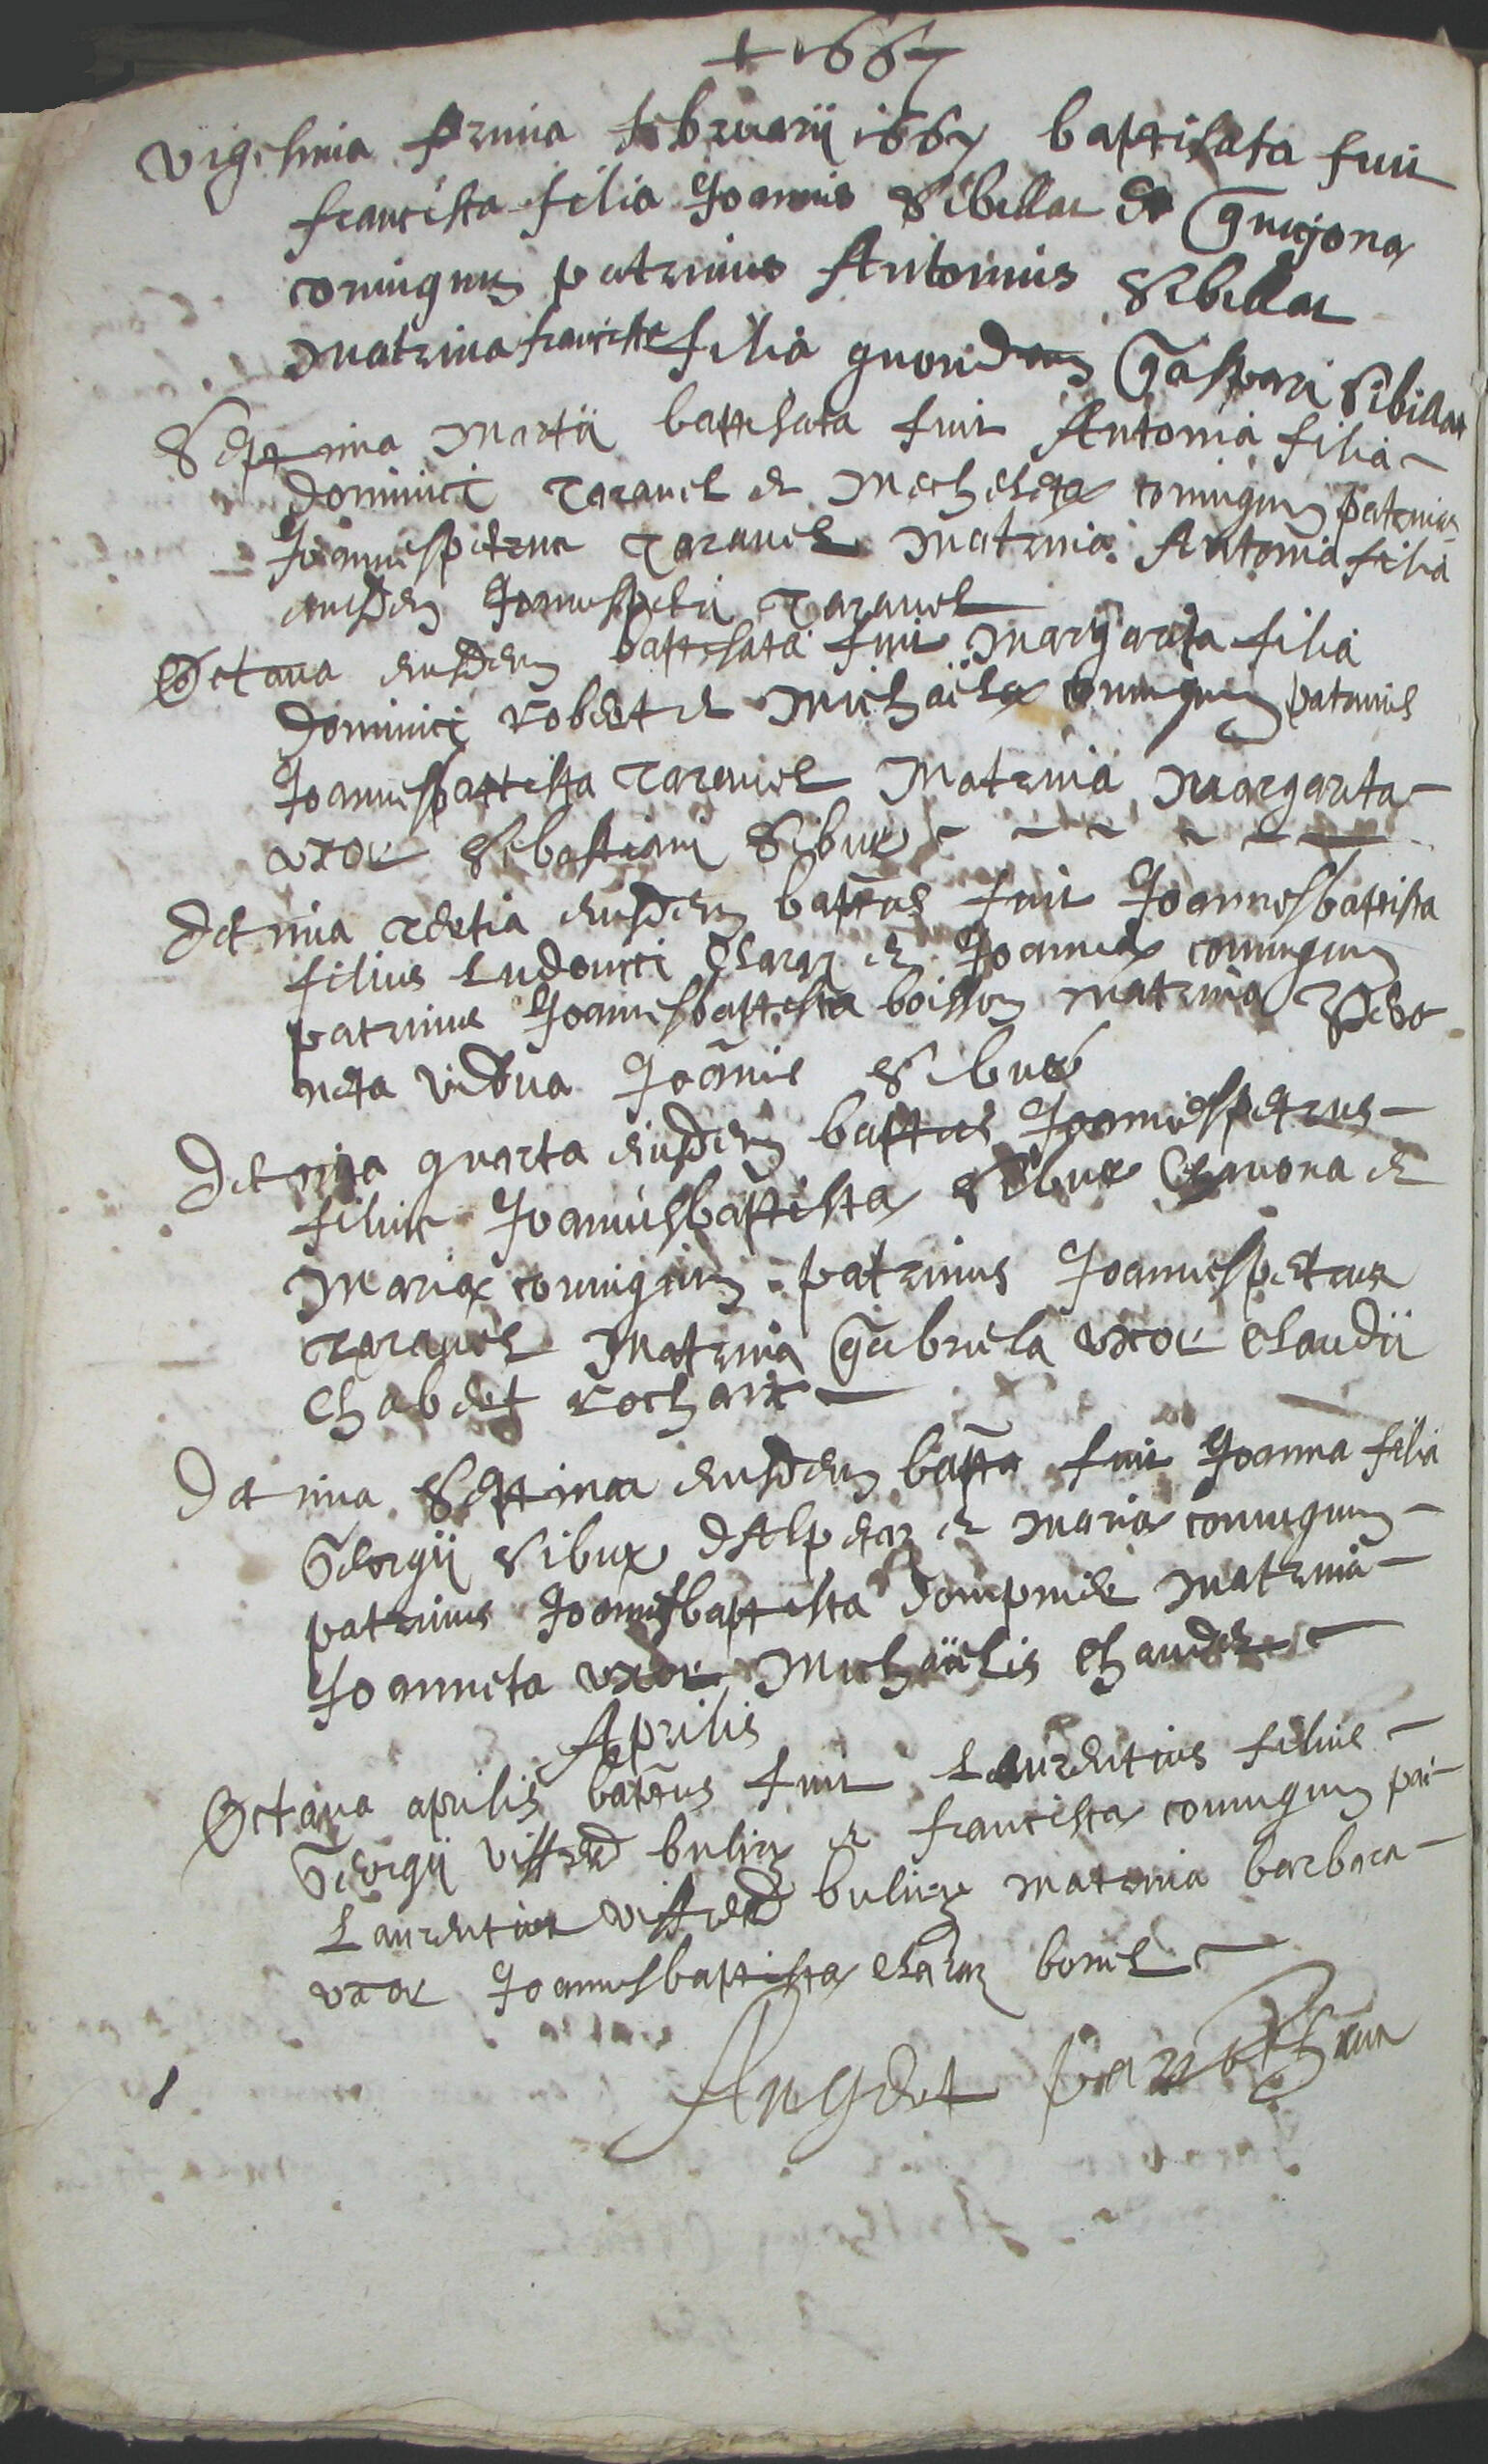 + 1667
Vigesima prima februarii 1667 baptisata fuit
francisca filia Joannis Sibillat et Guigona
coniugum patrinus Antonius Sibillat
matrina francisca filia quondam Gaspari Sibillat
Septima Martii baptisata fuit Antonia filia
Dominici Taravel et Micheletæ coniugum patrinus
Joannespetrus Taravel matrina Antonia filia
eiusdem Joannispetri Taravel
Octava eiusdem baptisata fuit Margarita filia
Dominici Robert et Michaelæ coniugum patrinus
Joannesbaptista Taravel Matrina Margarita
uxor Sebastiani Sibue
Decima tertia eiusdem baptus fuit Joannesbaptista
filius Ludovici Claraz et Joannæ coniugum
patrinus Joannesbaptista boisson matrina
neta vidua Joānis Sibue
Decima quarta eiusdem baptus Joannespetrus
filius Joannisbaptistæ Sibue et
Mariæ coniugum patrinus Joannespetrus
Taravel Matrina Gabriela uxor Claudii
Chabert Rochaix
Decima Septima eiusdem bapta fuit Joanna filia
Georgii Sibue et Mariæ coniugum
patrinus Joannesbaptista Dompnier matrina
Joanneta uxor Michäelis
Aprilis
Octava aprilis baptus fuit Laurentius filius
Georgii buliez et franciscæ coniugum pat
Laurentius buliez matrina barbara
uxor Joannisbaptistæ Claraz bonel